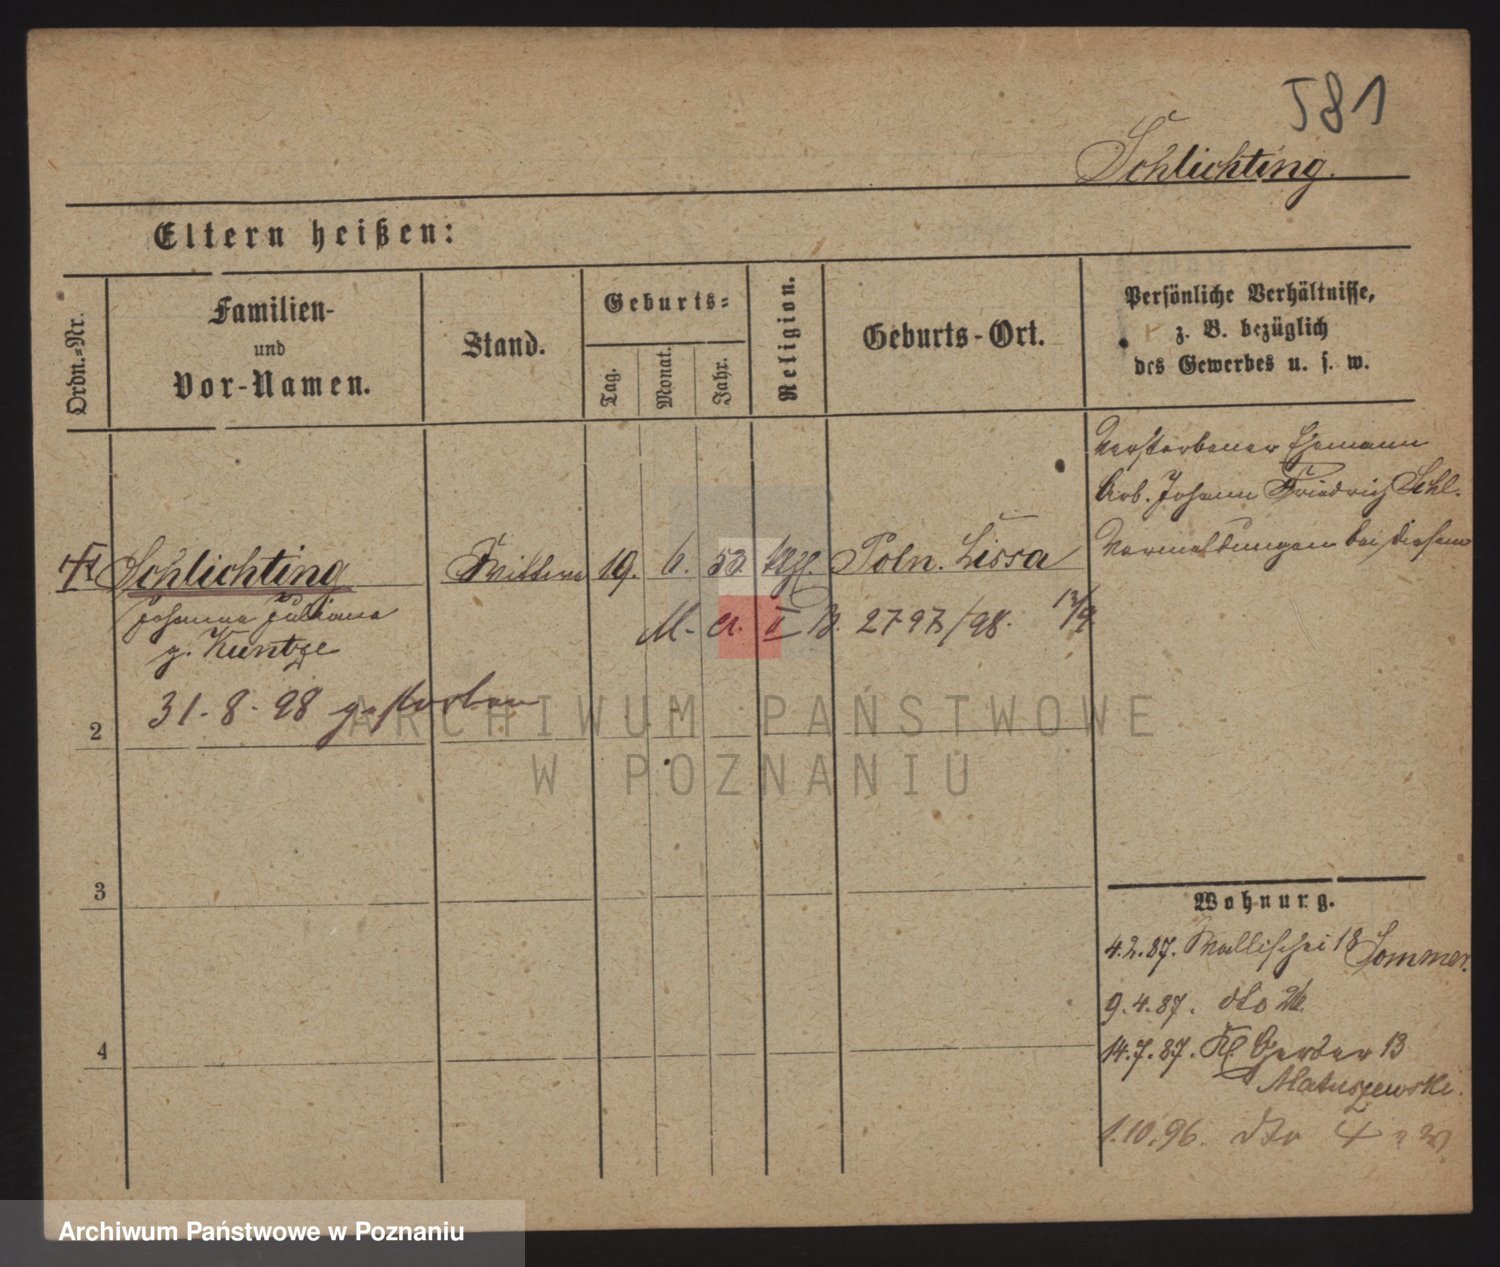 581
Schlichting.
Eltern heißen:
Ordn.=Nr.
Familien-
und
Vor-Namen.
Stand.
Geburts=
Tag.
Monat.
Jahr.
Religion.
Geburts-Ort.
Persönliche Verhältnisse,
z. B. bezüglich
des Gewerbes u. s. w.
Verstorbener Ehemann
Arb. Johann Friedrich Schl.
Vermeldungen bei diesem
Schlichting Wittwe 19. 6. Poln. Lissa
Johanna Juliana
g. Kuntze
M. II B. 2797/98. 13/9
31. 8. 98 gestorben
2
3
4
Wohnung.
4. 2. 87. Wallischei 18 Sommer.
9. 4. 87. dto
14. 7. 87. Kl. Gerber 13
Matuszewski.
1. 10. 96. dto 4
ARCHIWUM PAŃSTWOWE
W POZNANIU
Archiwum Państwowe w Poznaniu